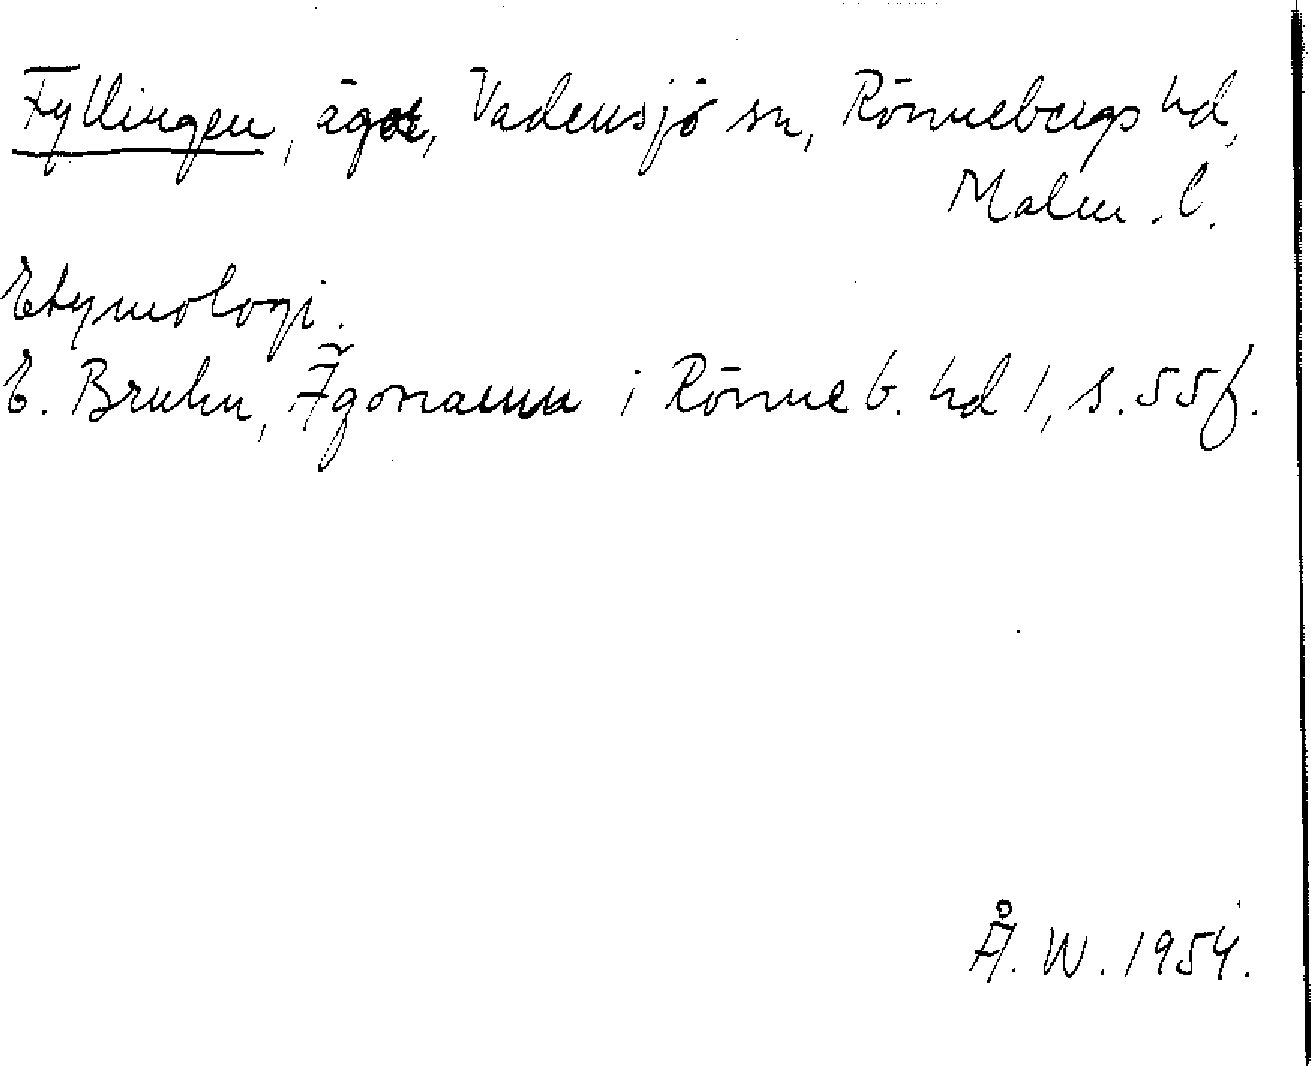 Fyllingen, ägor, Vadensjö sn, Rönnebergs hd,
Malm. l.
Etymologi.
E. Bruhn, Ägonamn i Rönneb. hd 1, s. 55f.
Å. W. 1954.